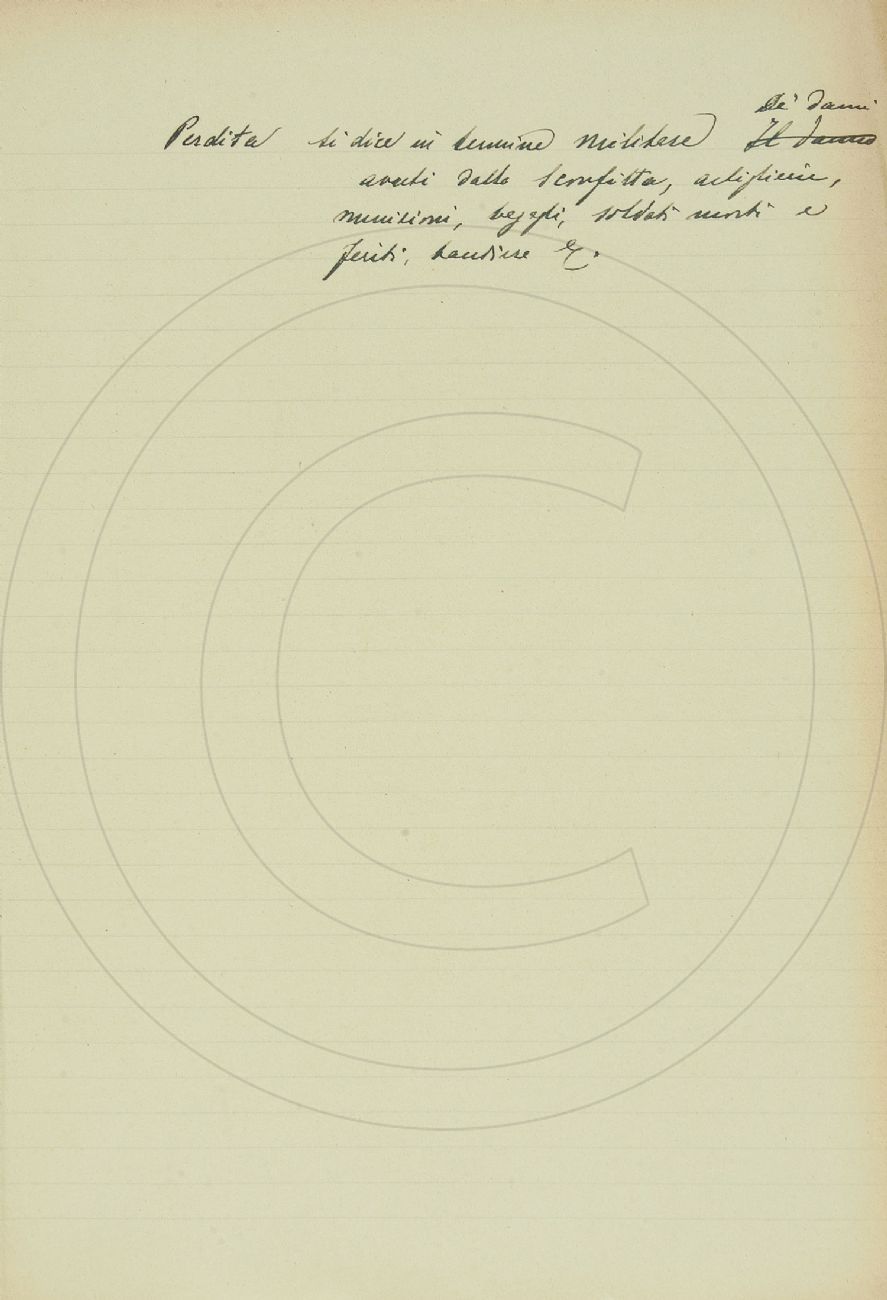 De' danni
Perdita si dice in termine militare Il danno
avuti dalla sconfitta, artiglierie,
munizioni, bagagli, soldati morti e
feriti, bandiere &.